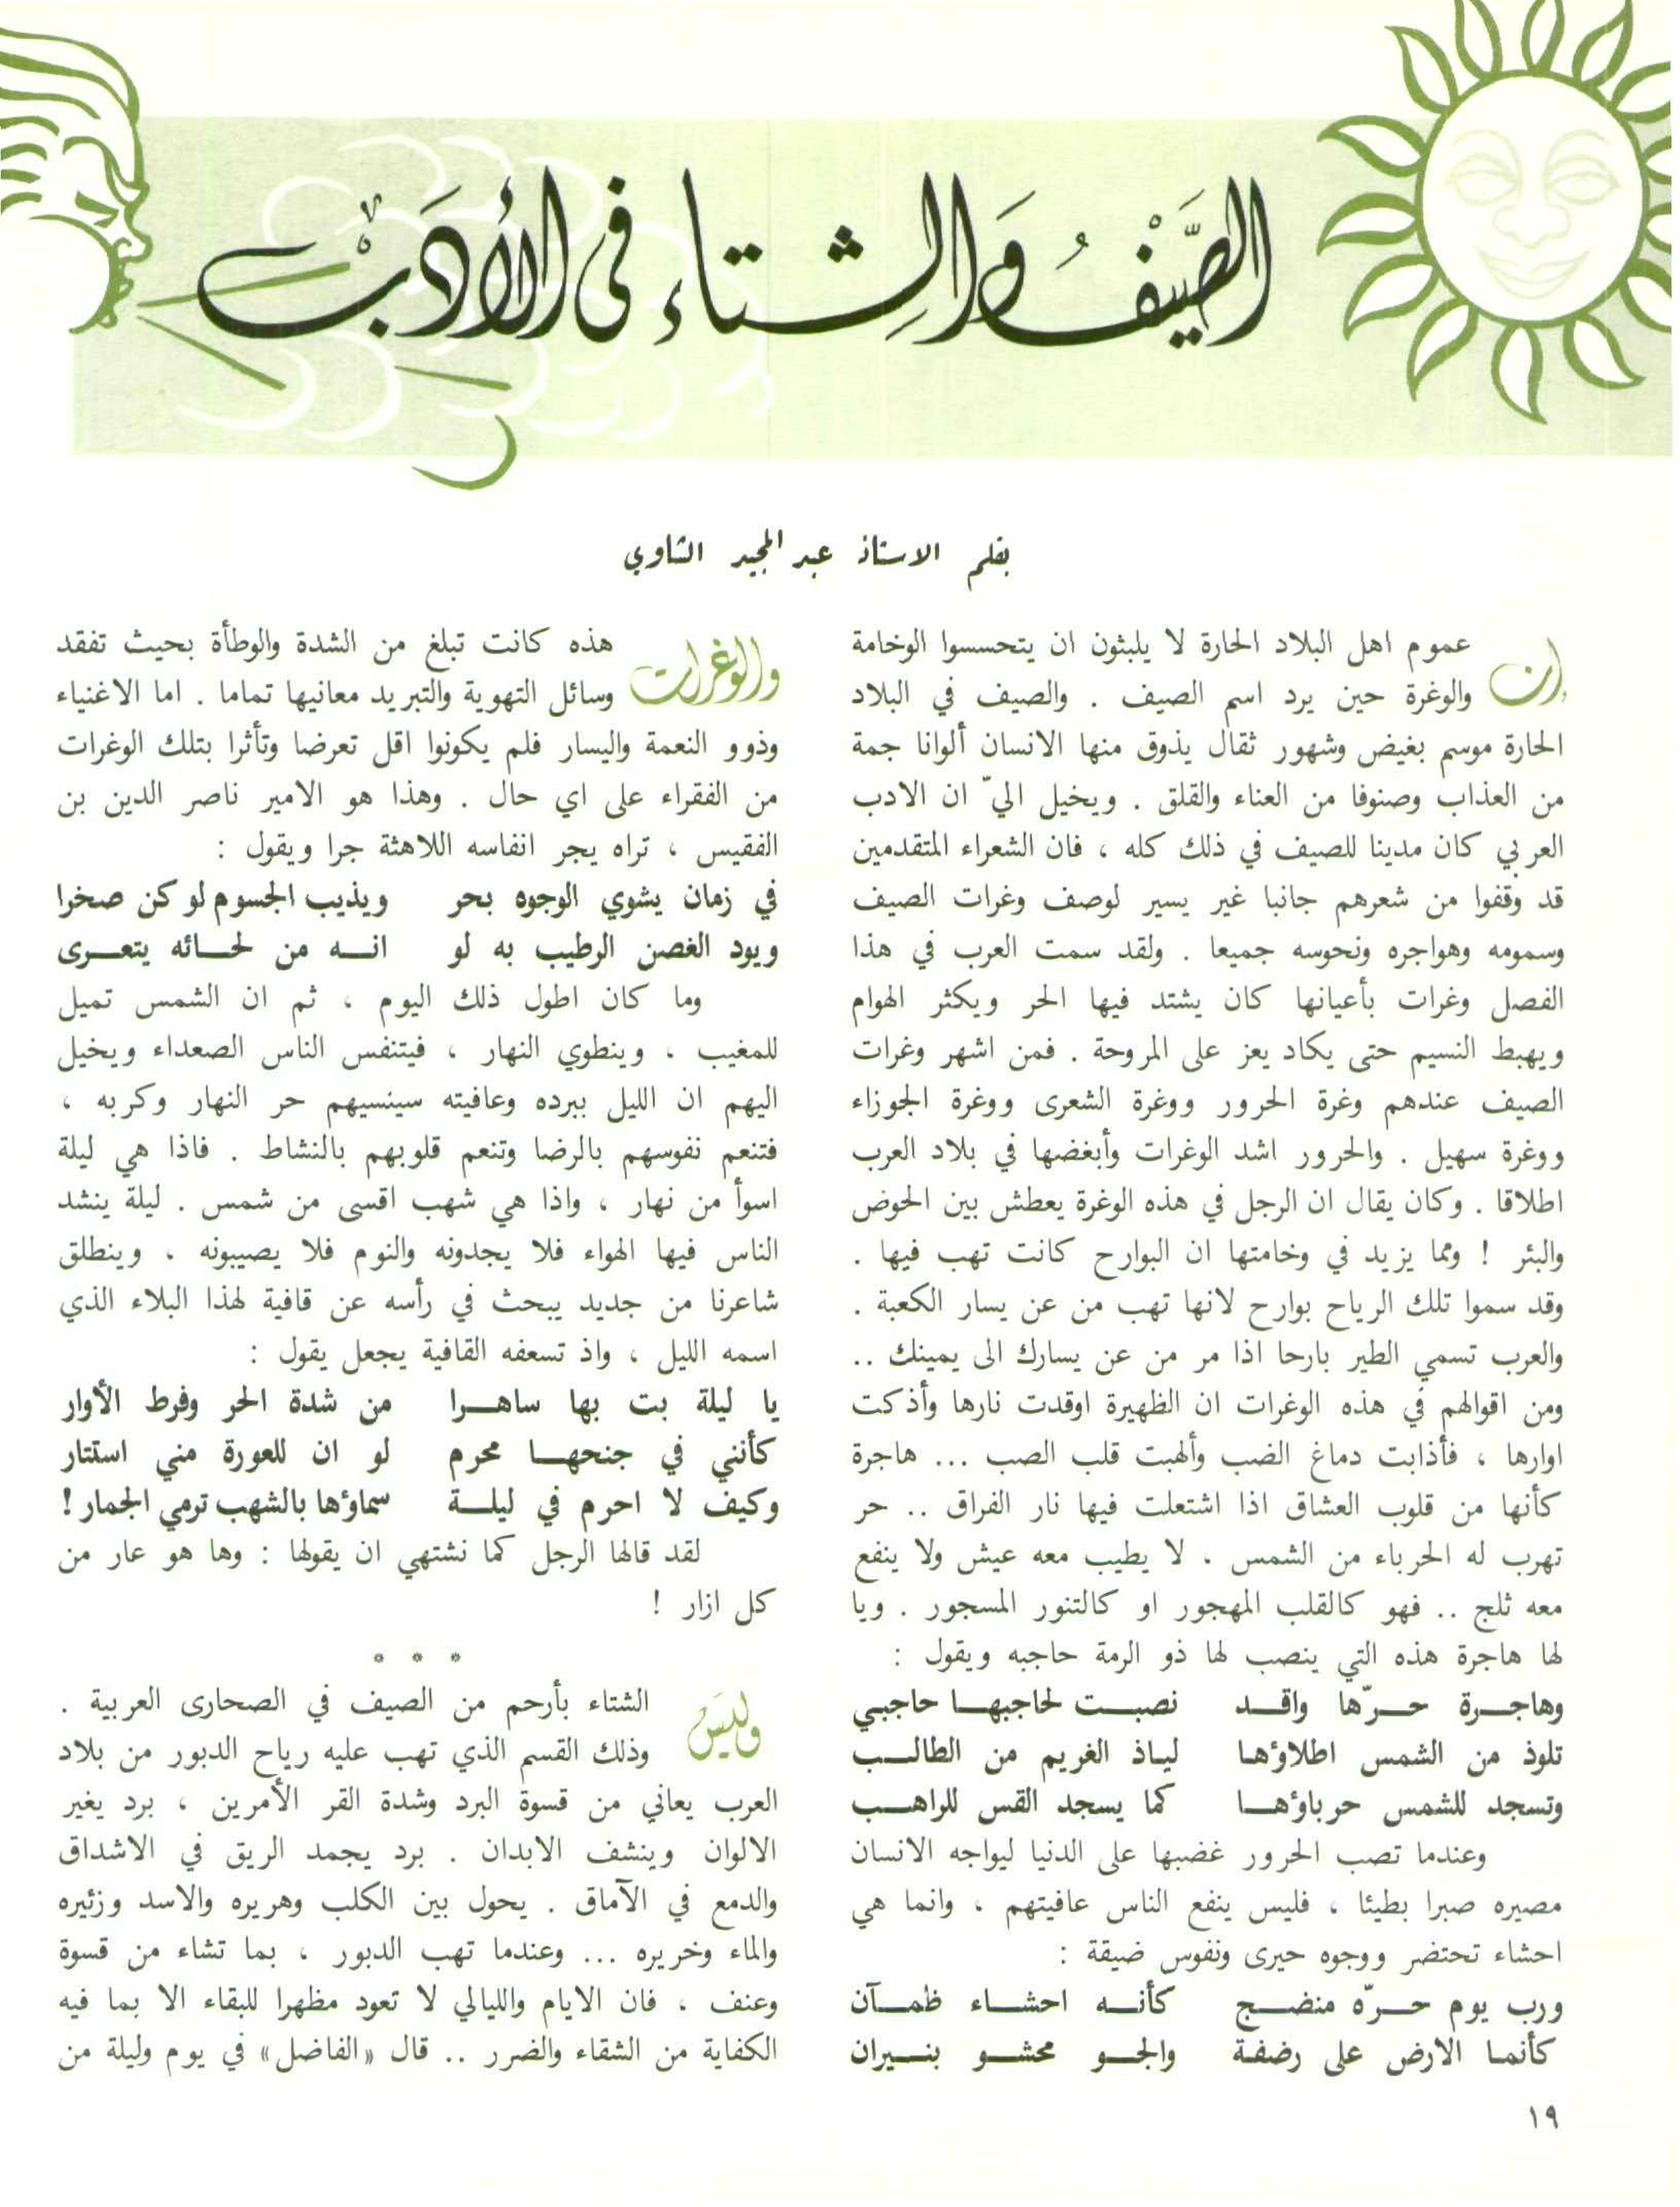 الصَّيْفُ وَالشتاء فى الأدَبْ
بقلم الاستاذ عبد المجيد الشاوي
ان عموم اهل البلاد الحارة لا يلبثون ان يتحسسوا الوخامة
والوغرة حين يرد اسم الصيف . والصيف في البلاد
الحارة موسم بغيض وشهور ثقال يذوق منها الانسان ألوانا جمة
من العذاب وصنوفا من العناء والقلق . ويخيل اليّ ان الادب
العربي كان مدينا للصيف في ذلك كله ، فان الشعراء المتقدمين
قد وقفوا من شعرهم جانبا غير يسير لوصف وغرات الصيف
وسمومه وهواجره ونحوسه جميعا . ولقد سمت العرب في هذا
الفصل وغرات بأعيانها كان يشتد فيها الحر ويكثر الهوام
ويهبط النسيم حتى يكاد يعز على المروحة . فمن اشهر وغرات
الصيف عندهم وغرة الحرور ووغرة الشعرى ووغرة الجوزاء
ووغرة سهيل . والحرور اشد الوغرات وأبغضها في بلاد العرب
اطلاقا . وكان يقال ان الرجل في هذه الوغرة يعطش بين الحوض
والبئر ! ومما يزيد في وخامتها ان البوارح كانت تهب فيها .
وقد سموا تلك الرياح بوارح لانها تهب من عن يسار الكعبة .
والعرب تسمي الطير بارحا اذا مر من عن يسارك الى يمينك ..
ومن اقوالهم في هذه الوغرات ان الظهيرة اوقدت نارها وأذكت
اوارها ، فأذابت دماغ الضب وألهبت قلب الصب ... هاجرة
كأنها من قلوب العشاق اذا اشتعلت فيها نار الفراق .. حر
تهرب له الحرباء من الشمس ، لا يطيب معه عيش ولا ينفع
معه ثلج .. فهو كالقلب المهجور او كالتنور المسجور . ويا
لها هاجرة هذه التي ينصب لها ذو الرمة حاجبه ويقول :
وهاجــرة حــرّها واقــد نصبــت لحاجبهــا حاجبي
تلوذ من الشمس اطلاؤها ليـاذ الغريم من الطالــب
وتسجد للشمس حرباؤهــا كما يسجد القس للراهــب
وعندما تصب الحرور غضبها على الدنيا ليواجه الانسان
مصيره صبرا بطيئا ، فليس ينفع الناس عافيتهم ، وانما هي
احشاء تحتضر ووجوه حيرى ونفوس ضيقة :
ورب يوم حــرّه منضــج كأنــه احشــاء ظمــآن
كأنمـا الارض على رضفـة والجــو محشــو بنــيران
والوغرات هذه كانت تبلغ من الشدة والوطأة بحيث تفقد
وسائل التهوية والتبريد معانيها تماما . اما الاغنياء
وذوو النعمة واليسار فلم يكونوا اقل تعرضا وتأثرا بتلك الوغرات
من الفقراء على اي حال . وهذا هو الامير ناصر الدين بن
الفقيس ، تراه يجر انفاسه اللاهثة جرا ويقول :
في زمان يشوي الوجوه بحر ويذيب الجسوم لو كن صخرا
ويود الغصن الرطيب به لو انــه من لحــائه يتعــرى
وما كان اطول ذلك اليوم ، ثم ان الشمس تميل
للمغيب ، وينطوي النهار ، فيتنفس الناس الصعداء ويخيل
اليهم ان الليل ببرده وعافيته سينسيهم حر النهار وكربه ،
فتنعم نفوسهم بالرضا وتنعم قلوبهم بالنشاط . فاذا هي ليلة
اسوأ من نهار ، واذا هي شهب اقسى من شمس . ليلة ينشد
الناس فيها الهواء فلا يجدونه والنوم فلا يصيبونه ، وينطلق
شاعرنا من جديد يبحث في رأسه عن قافية لهذا البلاء الذي
اسمه الليل ، واذ تسعفه القافية يجعل يقول :
يا ليلة بت بها ساهــرا من شدة الحر وفرط الأوار
كأنني في جنحهــا محرم لو ان للعورة مني استتار
وكيف لا احرم في ليلــة سماؤها بالشهب ترمي الجمار !
لقد قالها الرجل كما نشتهي ان يقولها : وها هو عار من
كل ازار !
* * *
وليَس الشتاء بأرحم من الصيف في الصحارى العربية .
وذلك القسم الذي تهب عليه رياح الدبور من بلاد
العرب يعاني من قسوة البرد وشدة القر الأمرين ، برد يغير
الالوان وينشف الابدان . برد يجمد الريق في الاشداق
والدمع في الآماق . يحول بين الكلب وهريره والاسد وزئيره
والماء وخريره ... وعندما تهب الدبور ، بما تشاء من قسوة
وعنف ، فان الايام والليالي لا تعود مظهرا للبقاء الا بما فيه
الكفاية من الشقاء والضرر .. قال «الفاضل» في يوم وليلة من
١٩